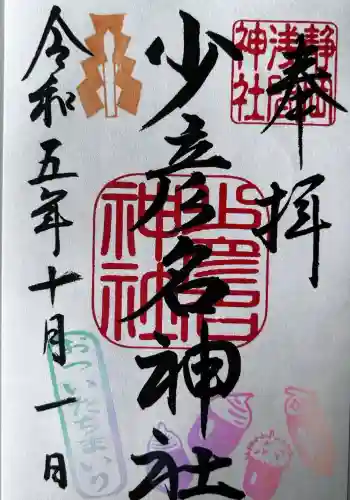 奉拝
静岡浅間神社
少彦名神社
少彦名神社
令和五年十月一日
おついたちまいり